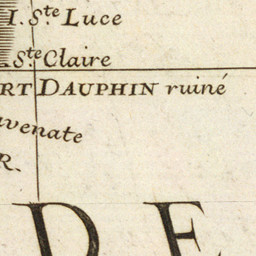 I. S.te Luce
Ste Claire
RT DAUPHIN ruiné
avenate
R.
DE